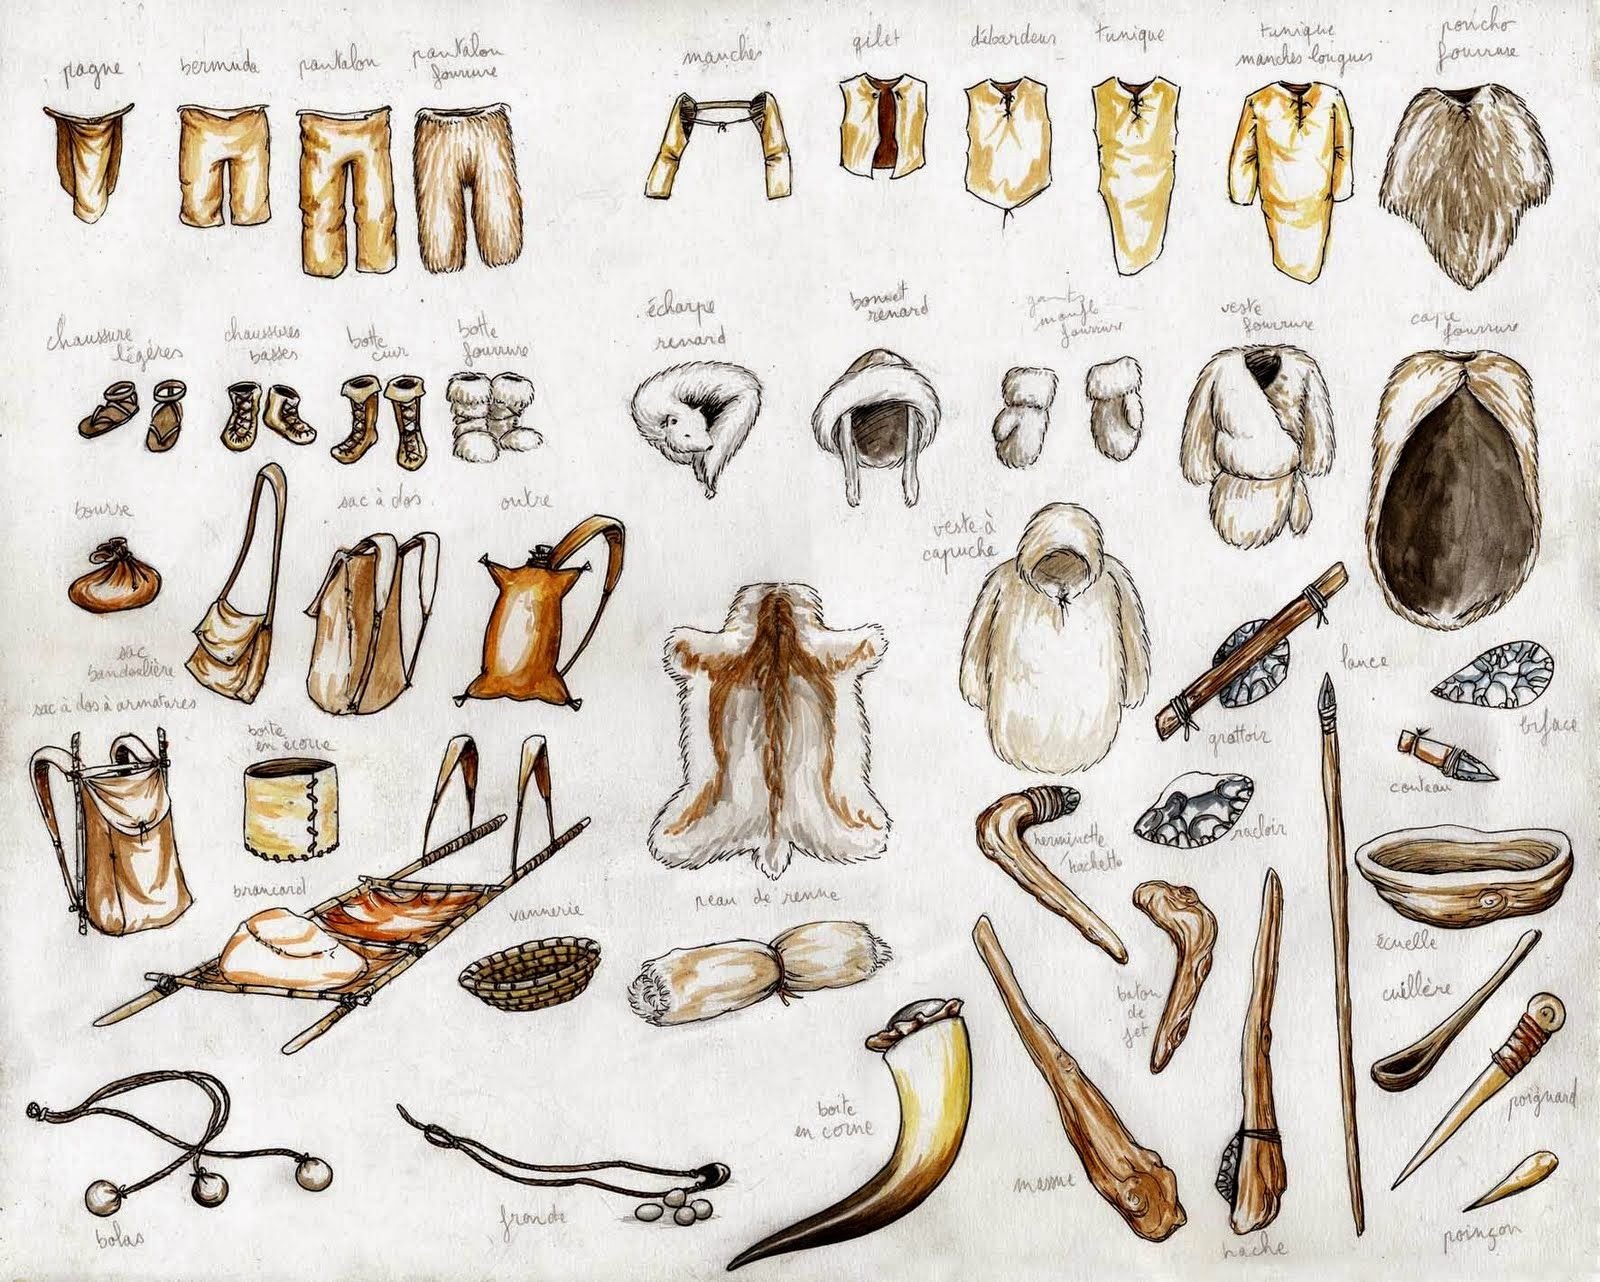 pagne
bermuda
pantalon
pantalon
fourrure
manches
gilet
débardeur
tunique
tunique
manches longues
poncho
fourrure
chaussure
légères
chaussures
basses
botte
cuir
botte
fourrure
écharpe
renard
bonnet
renard
gants
moufle
fourrure
veste
fourrure
cape
fourrure
bourse
sac à dos
outre
veste à
capuche
sac
bandoulière
sac à dos à armatures
lance
biface
grattoir
couteau
boite
en écorce
herminette
hachette
racloir
brancard
vannerie
peau de renne
écuelle
cuillère
baton
de
jet
poignard
boite
en corne
massue
bolas
fronde
hache
poinçon